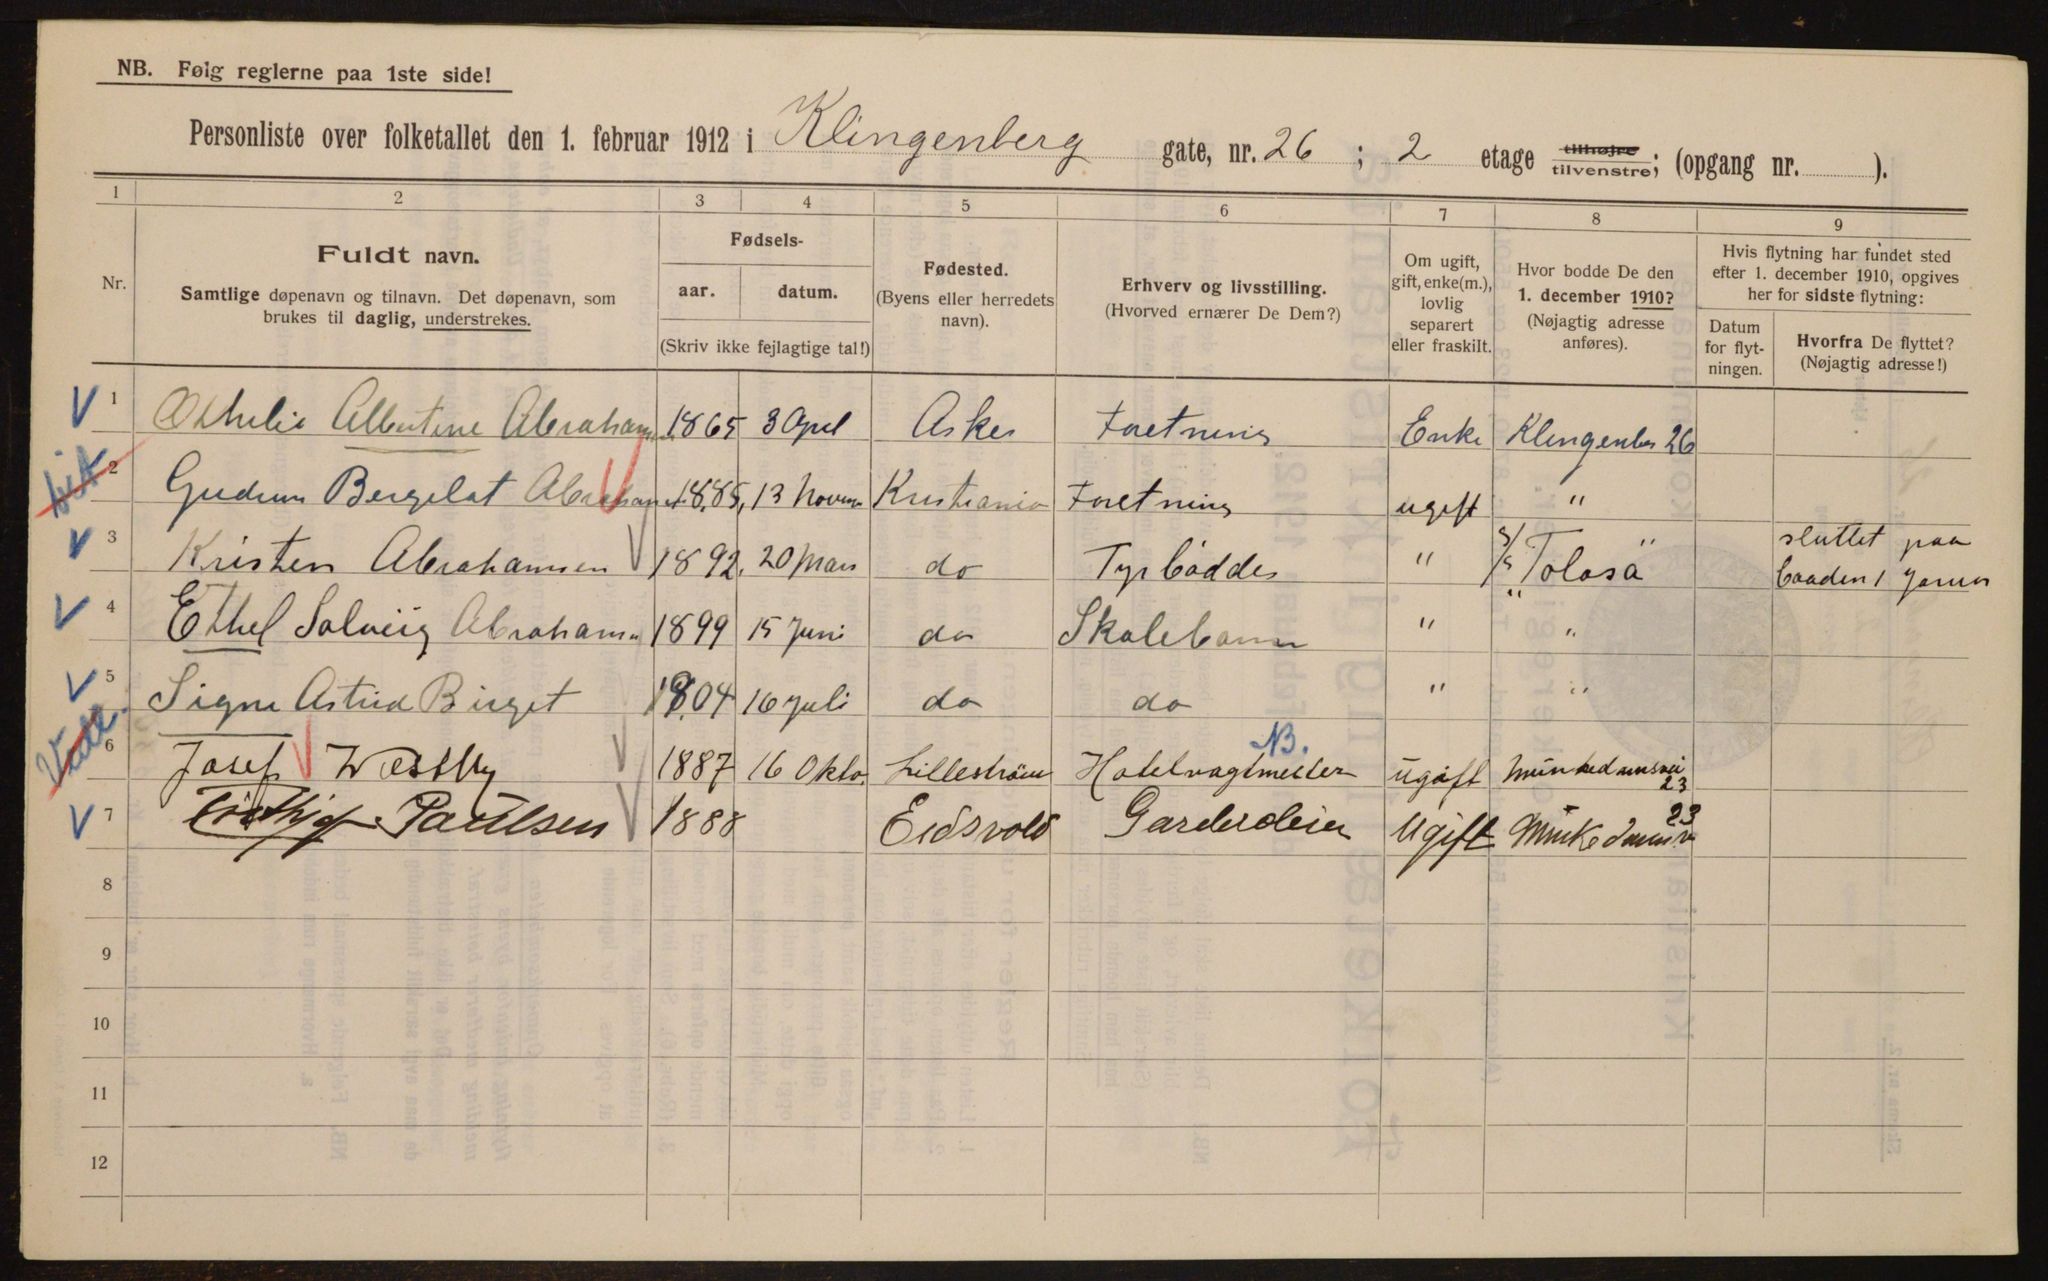 NB. Følg reglerne paa 1ste side!
Personliste over folketallet den 1. februar 1912 i Klingenberg gate, nr. 26 ; 2 etage tilhøjre tilvenstre; (opgang nr. ).
1 2 3 4 5 6 7 8 9
Nr.
Fuldt navn.
Samtlige døpenavn og tilnavn. Det døpenavn, som
brukes til daglig, understrekes.
Fødsels-
aar. datum.
(Skriv ikke fejlagtige tal!)
Fødested.
(Byens eller herredets
navn).
Erhverv og livsstilling.
(Hvorved ernærer De Dem?)
Om ugift,
gift, enke(m.),
lovlig
separert
eller fraskilt.
Hvor bodde De den
1. december 1910?
(Nøjagtig adresse
anføres).
Hvis flytning har fundet sted
efter 1. december 1910, opgives
her for sidste flytning:
Datum
for flyt-
ningen.
Hvorfra De flyttet?
(Nøjagtig adresse!)
1 Othelie Albertine Abrahamsen 1865 3 April Asker Foretning Enke Klingenber 26
2 Gudrun Abrahamsen 1885, 13 Novem Kristiania Foretning ugift "
3 Kristen Abrahamsen 1892, 20 Mars do " S/S Tolosa sluttet paa
baaden 1 Januar
4 Ethel Solveig Abrahamsen 1899 15 Juni do Skolebarn " "
5 Signe Astrid Birget 1904 16 Juli do do " "
NB.
6 Josef Westby 1887 16 Okto. Lillestrøm Hotelvagtmester ugift Munkedamsvei
23
7 Paulsen 1888 Eidsvold Ugift Munkedamsv 23
8
9
10
11
12